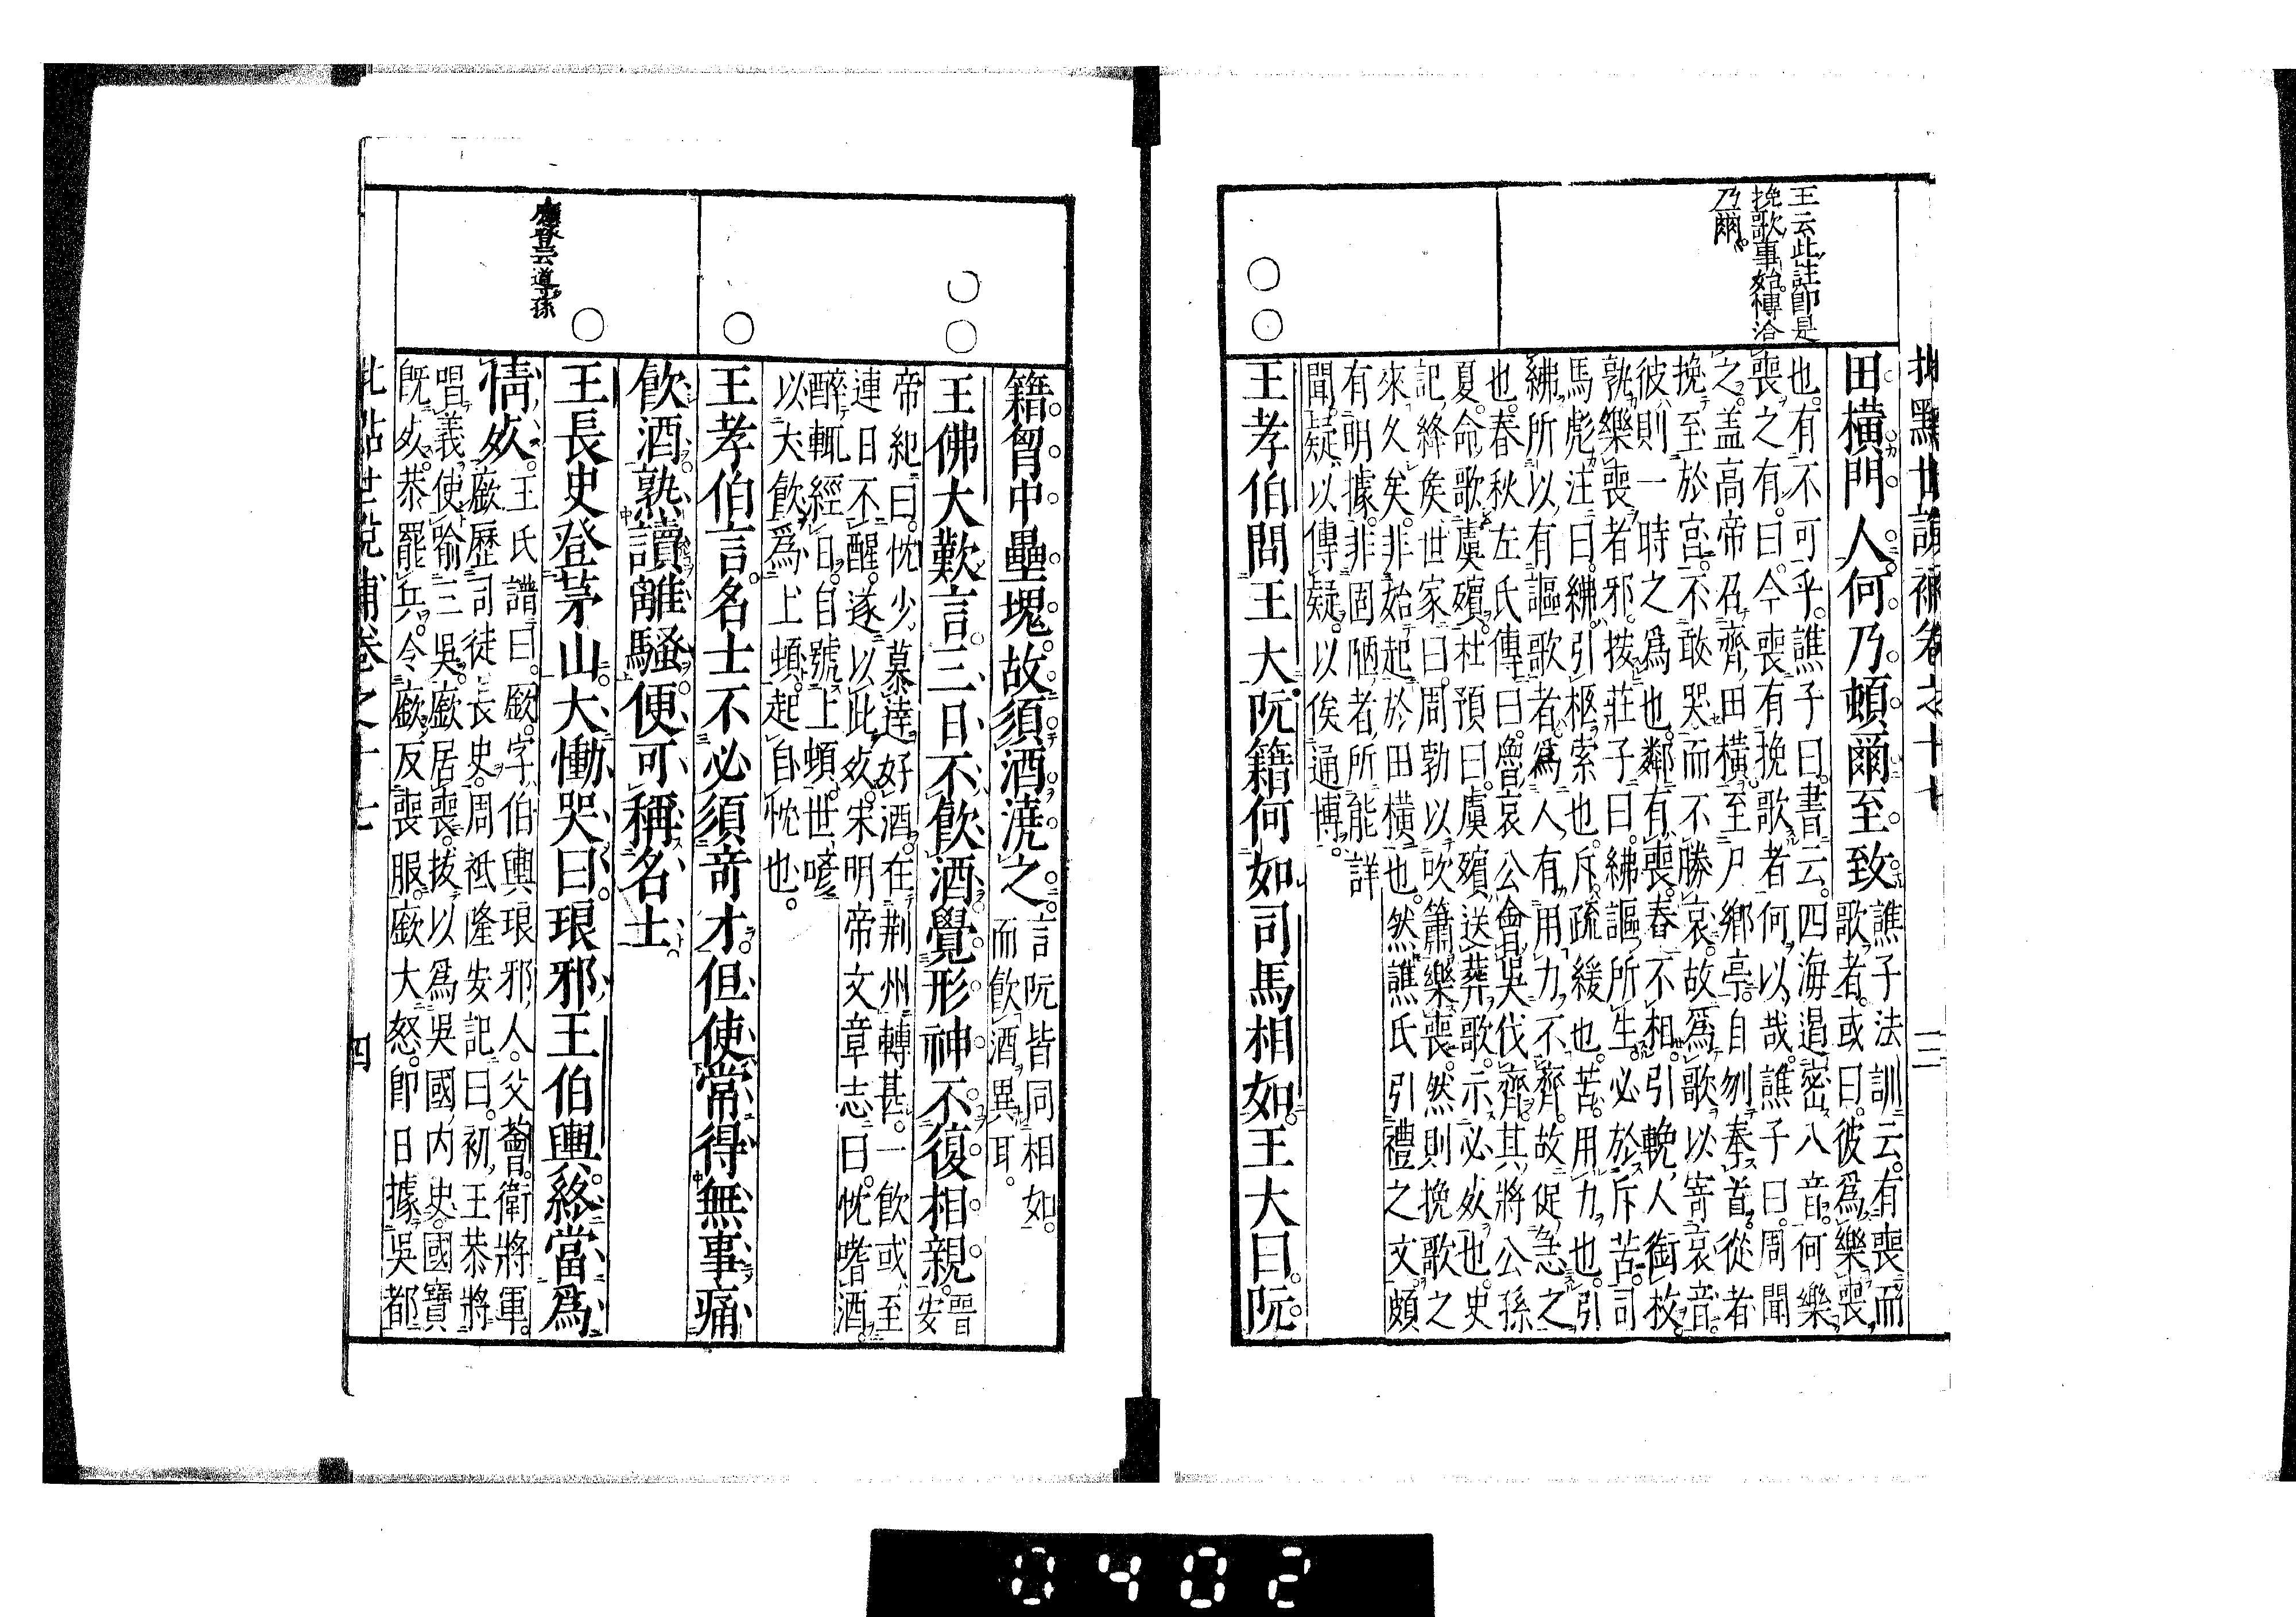 王云此註即是
挽歌事始博洽
乃爾
批點世說補卷之十七
田橫門人何乃頓爾至致
譙子法訓云有喪而
歌者或曰彼為樂喪
也有不可乎譙子曰書云四海遏密八音何樂
喪之有曰今喪有挽歌者何以哉譙子曰周聞
之蓋高帝召齊田橫至尸鄉亭自刎奉首從者
挽至於宮不敢哭而不勝哀故為歌以寄哀音
彼則一時之為也鄰有喪舂不相引輓人銜枚
孰樂喪者邪按莊子曰紼謳所生必於斥苦司
馬彪注曰紼引柩索也斥疏緩也苦用力也引
紼所以有謳歌者為人有用力不齊故促急之
也春秋左氏傳曰魯哀公會吳伐齊其將公孫
夏命歌虞殯杜預曰虞殯送葬歌示必死也史
記絳侯世家曰周勃以吹簫樂喪然則挽歌之
來久矣非始起於田橫也然譙氏引禮之文頗
有明據非固陋者所能詳
聞疑以傳疑以俟通博
王孝伯問王大阮籍何如司馬相如王大曰阮
籍胷中壘塊故須酒澆之
言阮皆同相如
而飲酒異耳
王佛大歎言三日不飲酒覺形神不復相親
晉安
帝紀曰忱少慕達好酒在荆州轉甚一飲或至
連日不醒遂以此死宋明帝文章志曰忱嗜酒
醉輒經日自號上頓世喭
以大飲為上頓起自忱也
王孝伯言名士不必須竒才但使常得無事痛
飲酒熟讀離騷便可稱名士
王長史登茅山大慟哭曰琅邪王伯輿終當為
情死
王氏譜曰廞字伯輿琅邪人父薈衛將軍
廞歷司徒長史周祗隆安記曰初王恭將
唱義使喻三吳廞居喪拔以為吳國内史國寶
旣死恭罷兵令廞反喪服廞大怒即日據吳都
批點世說補卷之十七
四
0402